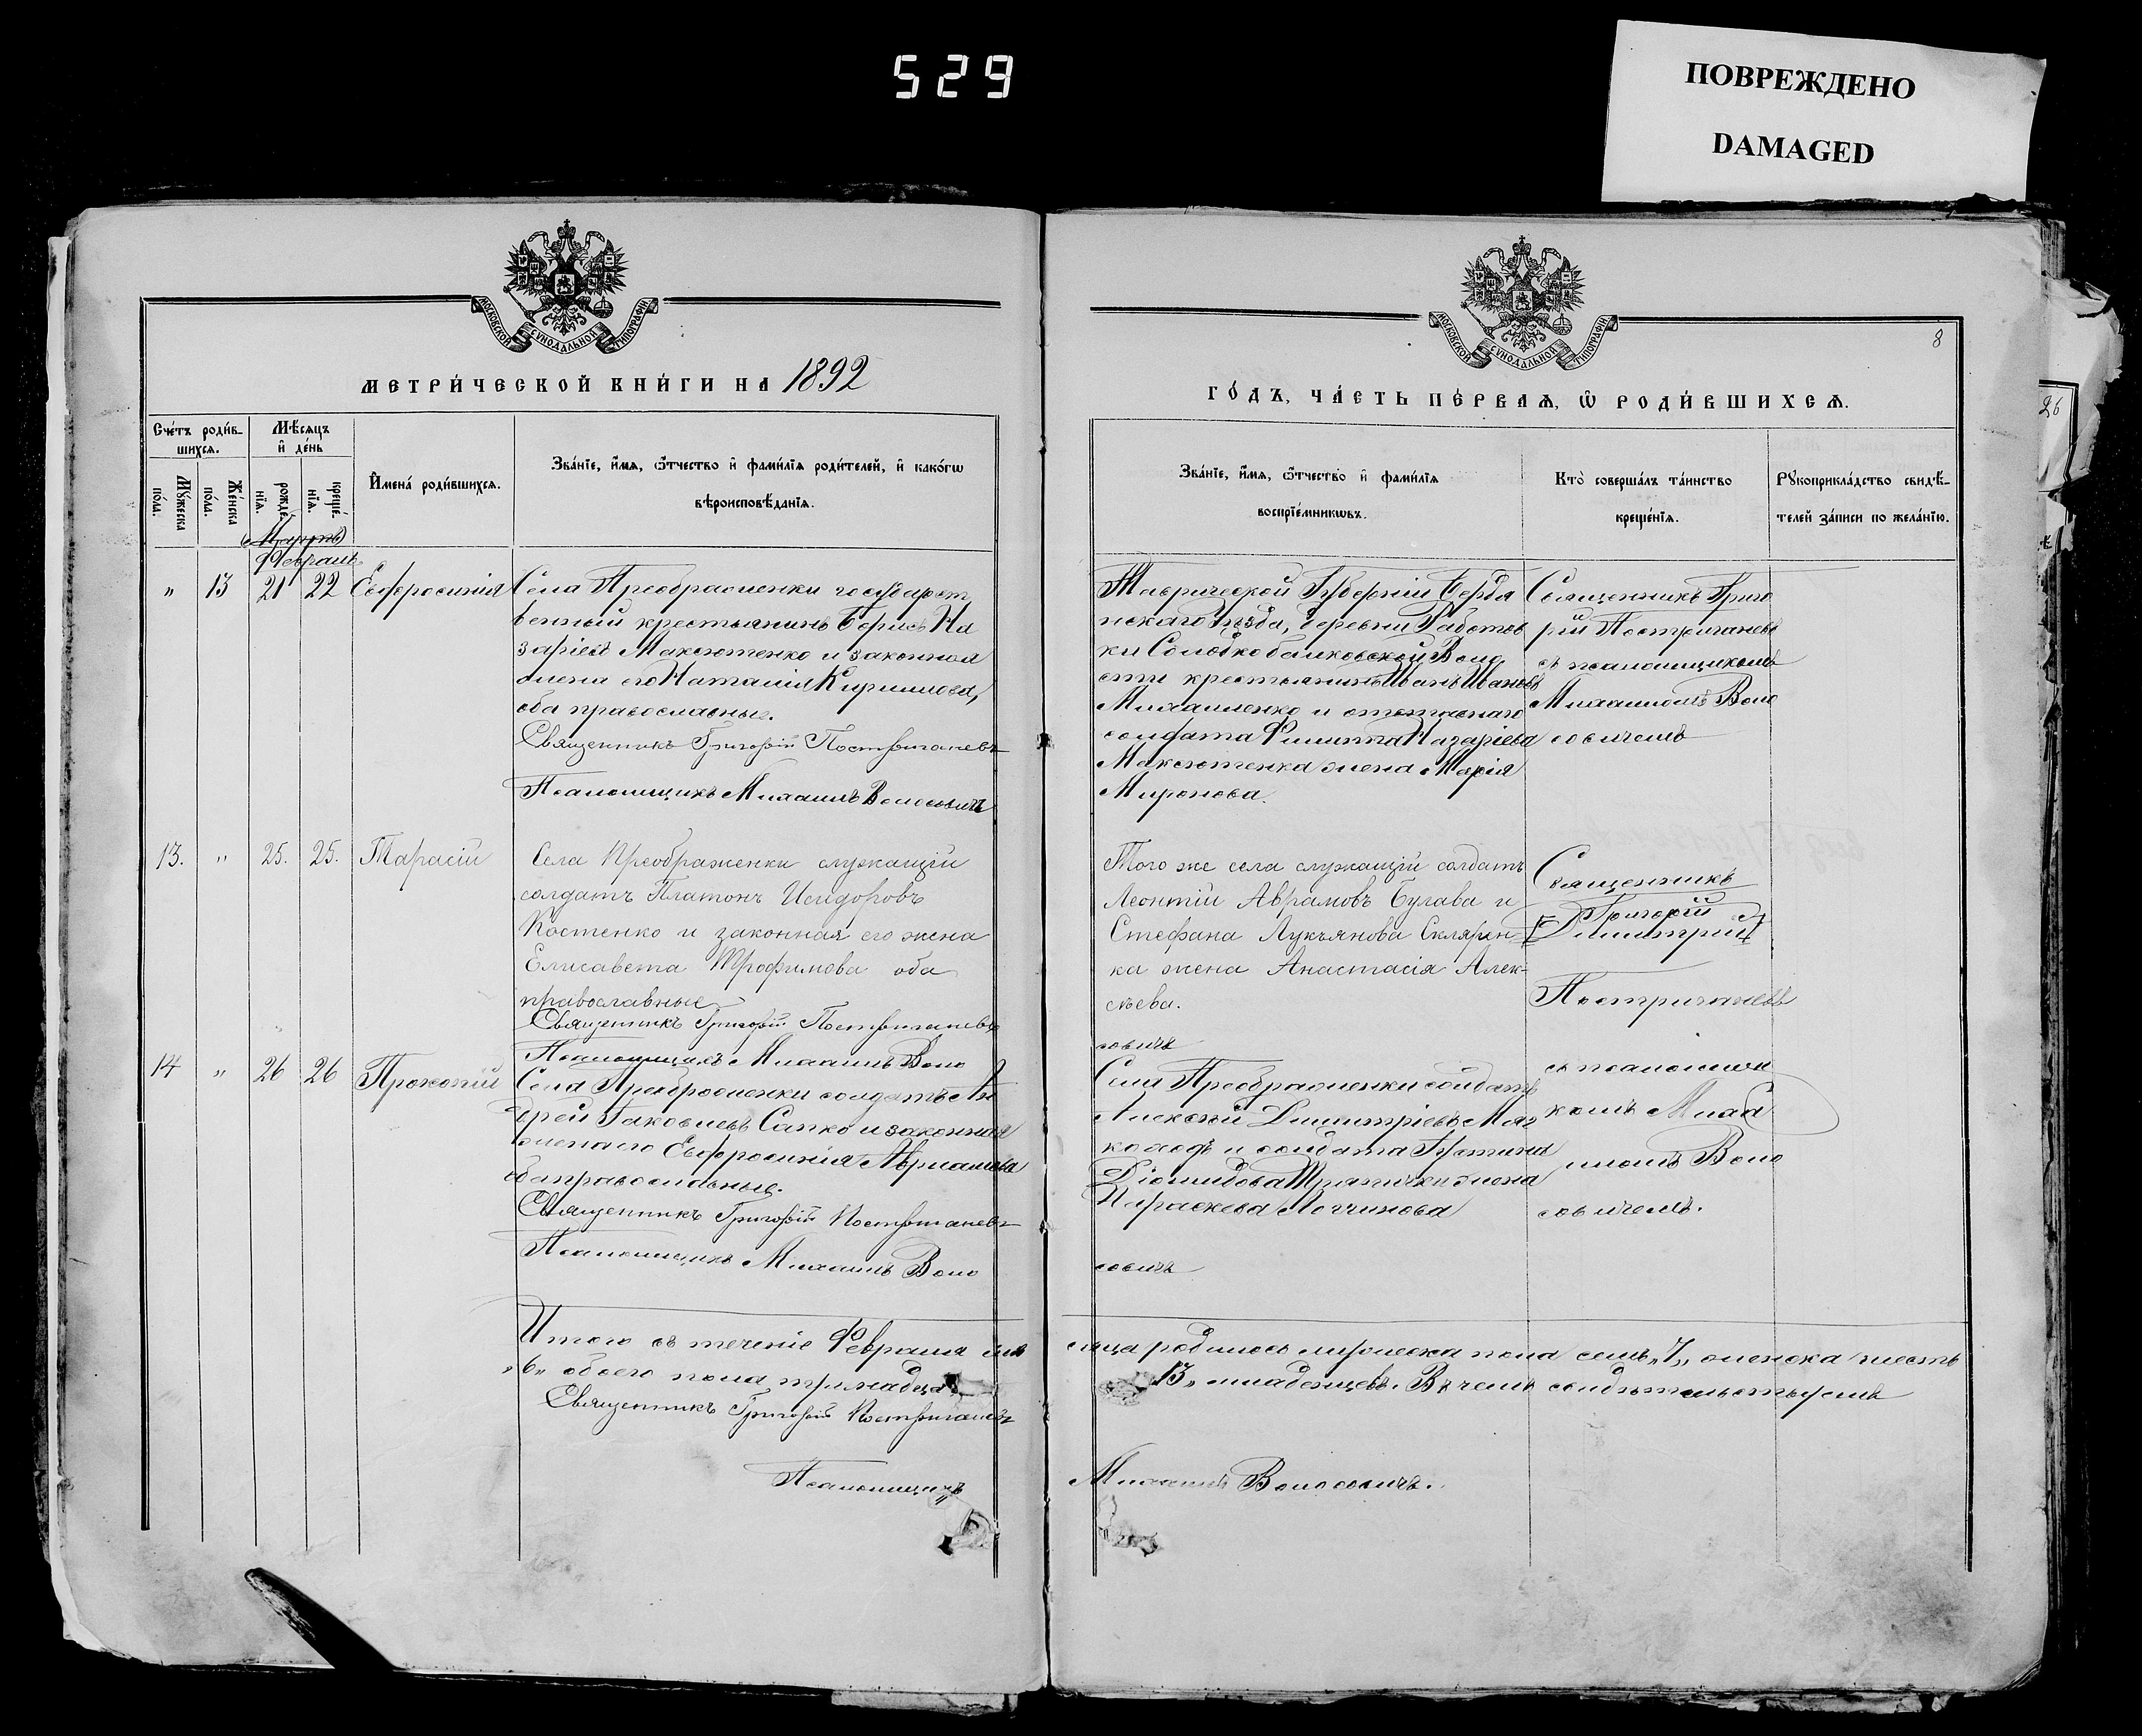 529
ПОВРЕЖДЕНО
DAMAGED
МОСКОВСКОЙ СѴНОДАЛЬНОЙ ТИПОГРАФІИ
МЕТРИ́ЧЕСКОЙ КНИ́ГИ НА 1892
Сче́тъ роди́в-
шихся.
Мѣ́сяцъ
и҆ де́нь
Мꙋ́жеска
по́ла.
Же́нска
по́ла.
рожде́-
нїя.
креще́-
нїя.
И҆мена̀ роди́вшихся.
Зва́нїе, и҆́мя, ѻ҆́тчество и҆ фами́лїя роди́телей, и҆ како́гѡ
вѣроисповѣ́данїя.
Мартъ
Февраль
" 13 21 22 Евфросинія
Села Преображенки государст
венный крестьянинъ Борисъ На
заріевъ Максютенко и законная
жена его Наталія Кириллова,
оба православные.
Священникъ Григорій Постриганевъ
Псаломщикъ Михаилъ Волосовичъ
13. " 25. 25. Тарасій
Села Преображенки служащій
солдатъ Платонъ Исидоровъ
Костенко и законная его жена
Елисавета Трофимова оба
православные
Священникъ Григорій Постриганевъ
Псаломщикъ Михаилъ Воло
14 " 26 26 Прокопій
Села Преображенки солдатъ Ан
дрей Іаковлевъ Сапко и законная
жена его Евфросинія Авраамова
оба православные.
Священникъ Григорій Постриганевъ
Псаломщикъ Михаилъ Воло
Итого въ теченіе Февраля мѣ
"6" обоего пола тринадца
Священникъ Григорій Постриганевъ
Псаломщикъ
МОСКОВСКОЙ СѴНОДАЛЬНОЙ ТИПОГРАФІИ
8
26
ГО́ДЪ, ЧА́СТЬ ПЕ́РВАЯ, Ѡ҆ РОДИ́ВШИХСЯ.
Зва́нїе, и҆́мя, ѻ҆́тчество и҆ фами́лїя
воспрїе́мникѡвъ.
Кто̀ соверша́лъ та́инство
креще́нїя.
Рꙋкоприкла́дство свидѣ́-
телей за́писи по жела́нїю.
Таврической Губерніи Бердя
нскаго Уѣзда, деревни Работов
ки Солодкобалковской Воло
сти крестьянинъ Иванъ Ивановъ
Михайленко и отставнаго
солдата Филиппа Назаріева
Максютенка жена Марія
Миронова.
Священникъ Григо
рій Постриганевъ
съ псаломщикомъ
Михаиломъ Воло
совичемъ
Того же села служащій солдатъ
Леонтій Аврамовъ Булава и
Стефана Лукьянова Склярен-
ка жена Анастасія Алек-
сѣева.
совичъ
Священникъ
Григорій
[Димитрій]
Постриганевъ
съ псаломщи
комъ Миха
иломъ Воло
совичемъ.
Села Преображенки солдатъ
Алексѣй Димитріевъ
и солдата
Діомидова жена
Параскева Логгинова
совичъ
сяца родилось мужеска пола семь "7" женска шесть
13" младенцевъ. Въ чемъ свидѣтельствуемъ
Михаилъ Волосовичъ.